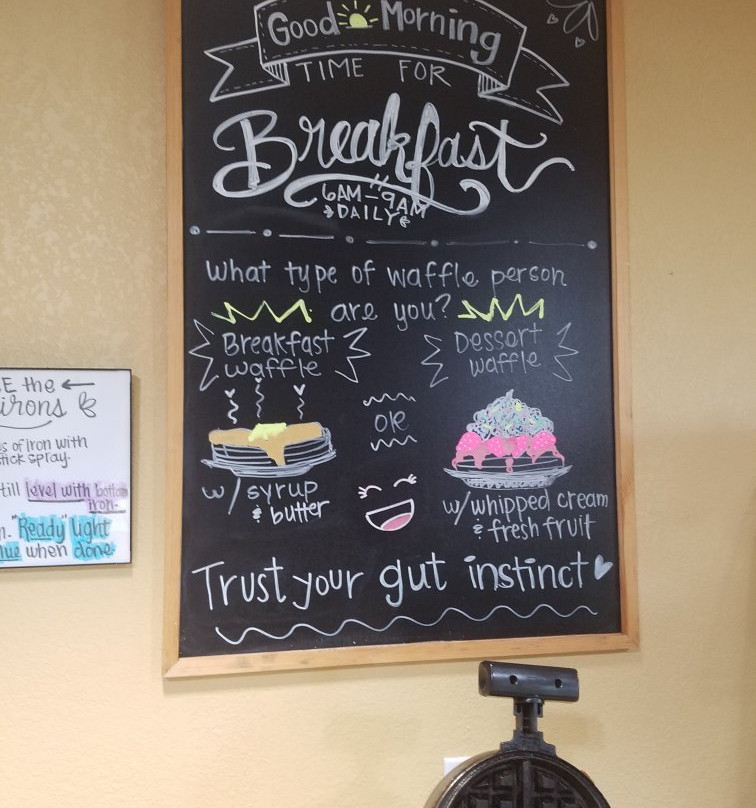 Good Morning
TIME FOR
Breakfast
6AM–9AM
DAILY
What type of waffle person
are you?
Breakfast
waffle
Dessert
waffle
OR
w/ syrup
& butter
w/ whipped cream
& fresh fruit
Trust your gut instinct
E the
irons
s of Iron with
stick spray.
till level with bottom
Iron.
n. "Ready" light
lue when done.